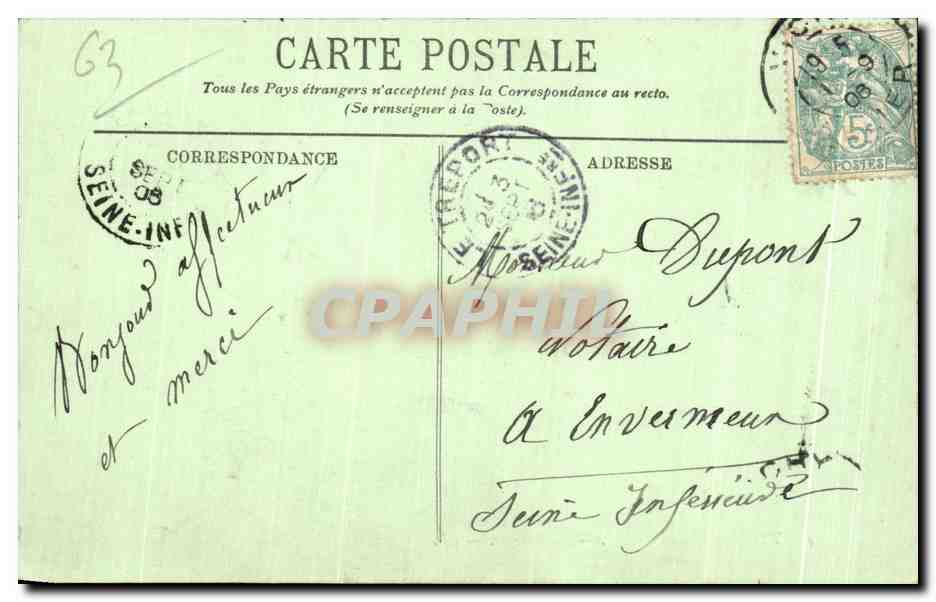 63
CARTE POSTALE
Tous les Pays étrangers n'acceptent pas la Correspondance au recto.
(Se renseigner à la Poste).
CORRESPONDANCE
ADRESSE
5c
POSTES
19
5 9
08
SEPT
08
SEINE-INF
LE TREPORT
SEINE-INFRE
2 3
Bonjour affectueux
et merci
Monsieur Dupont
Notaire
A Envermeu
Seine Inférieure
CPAPHIL